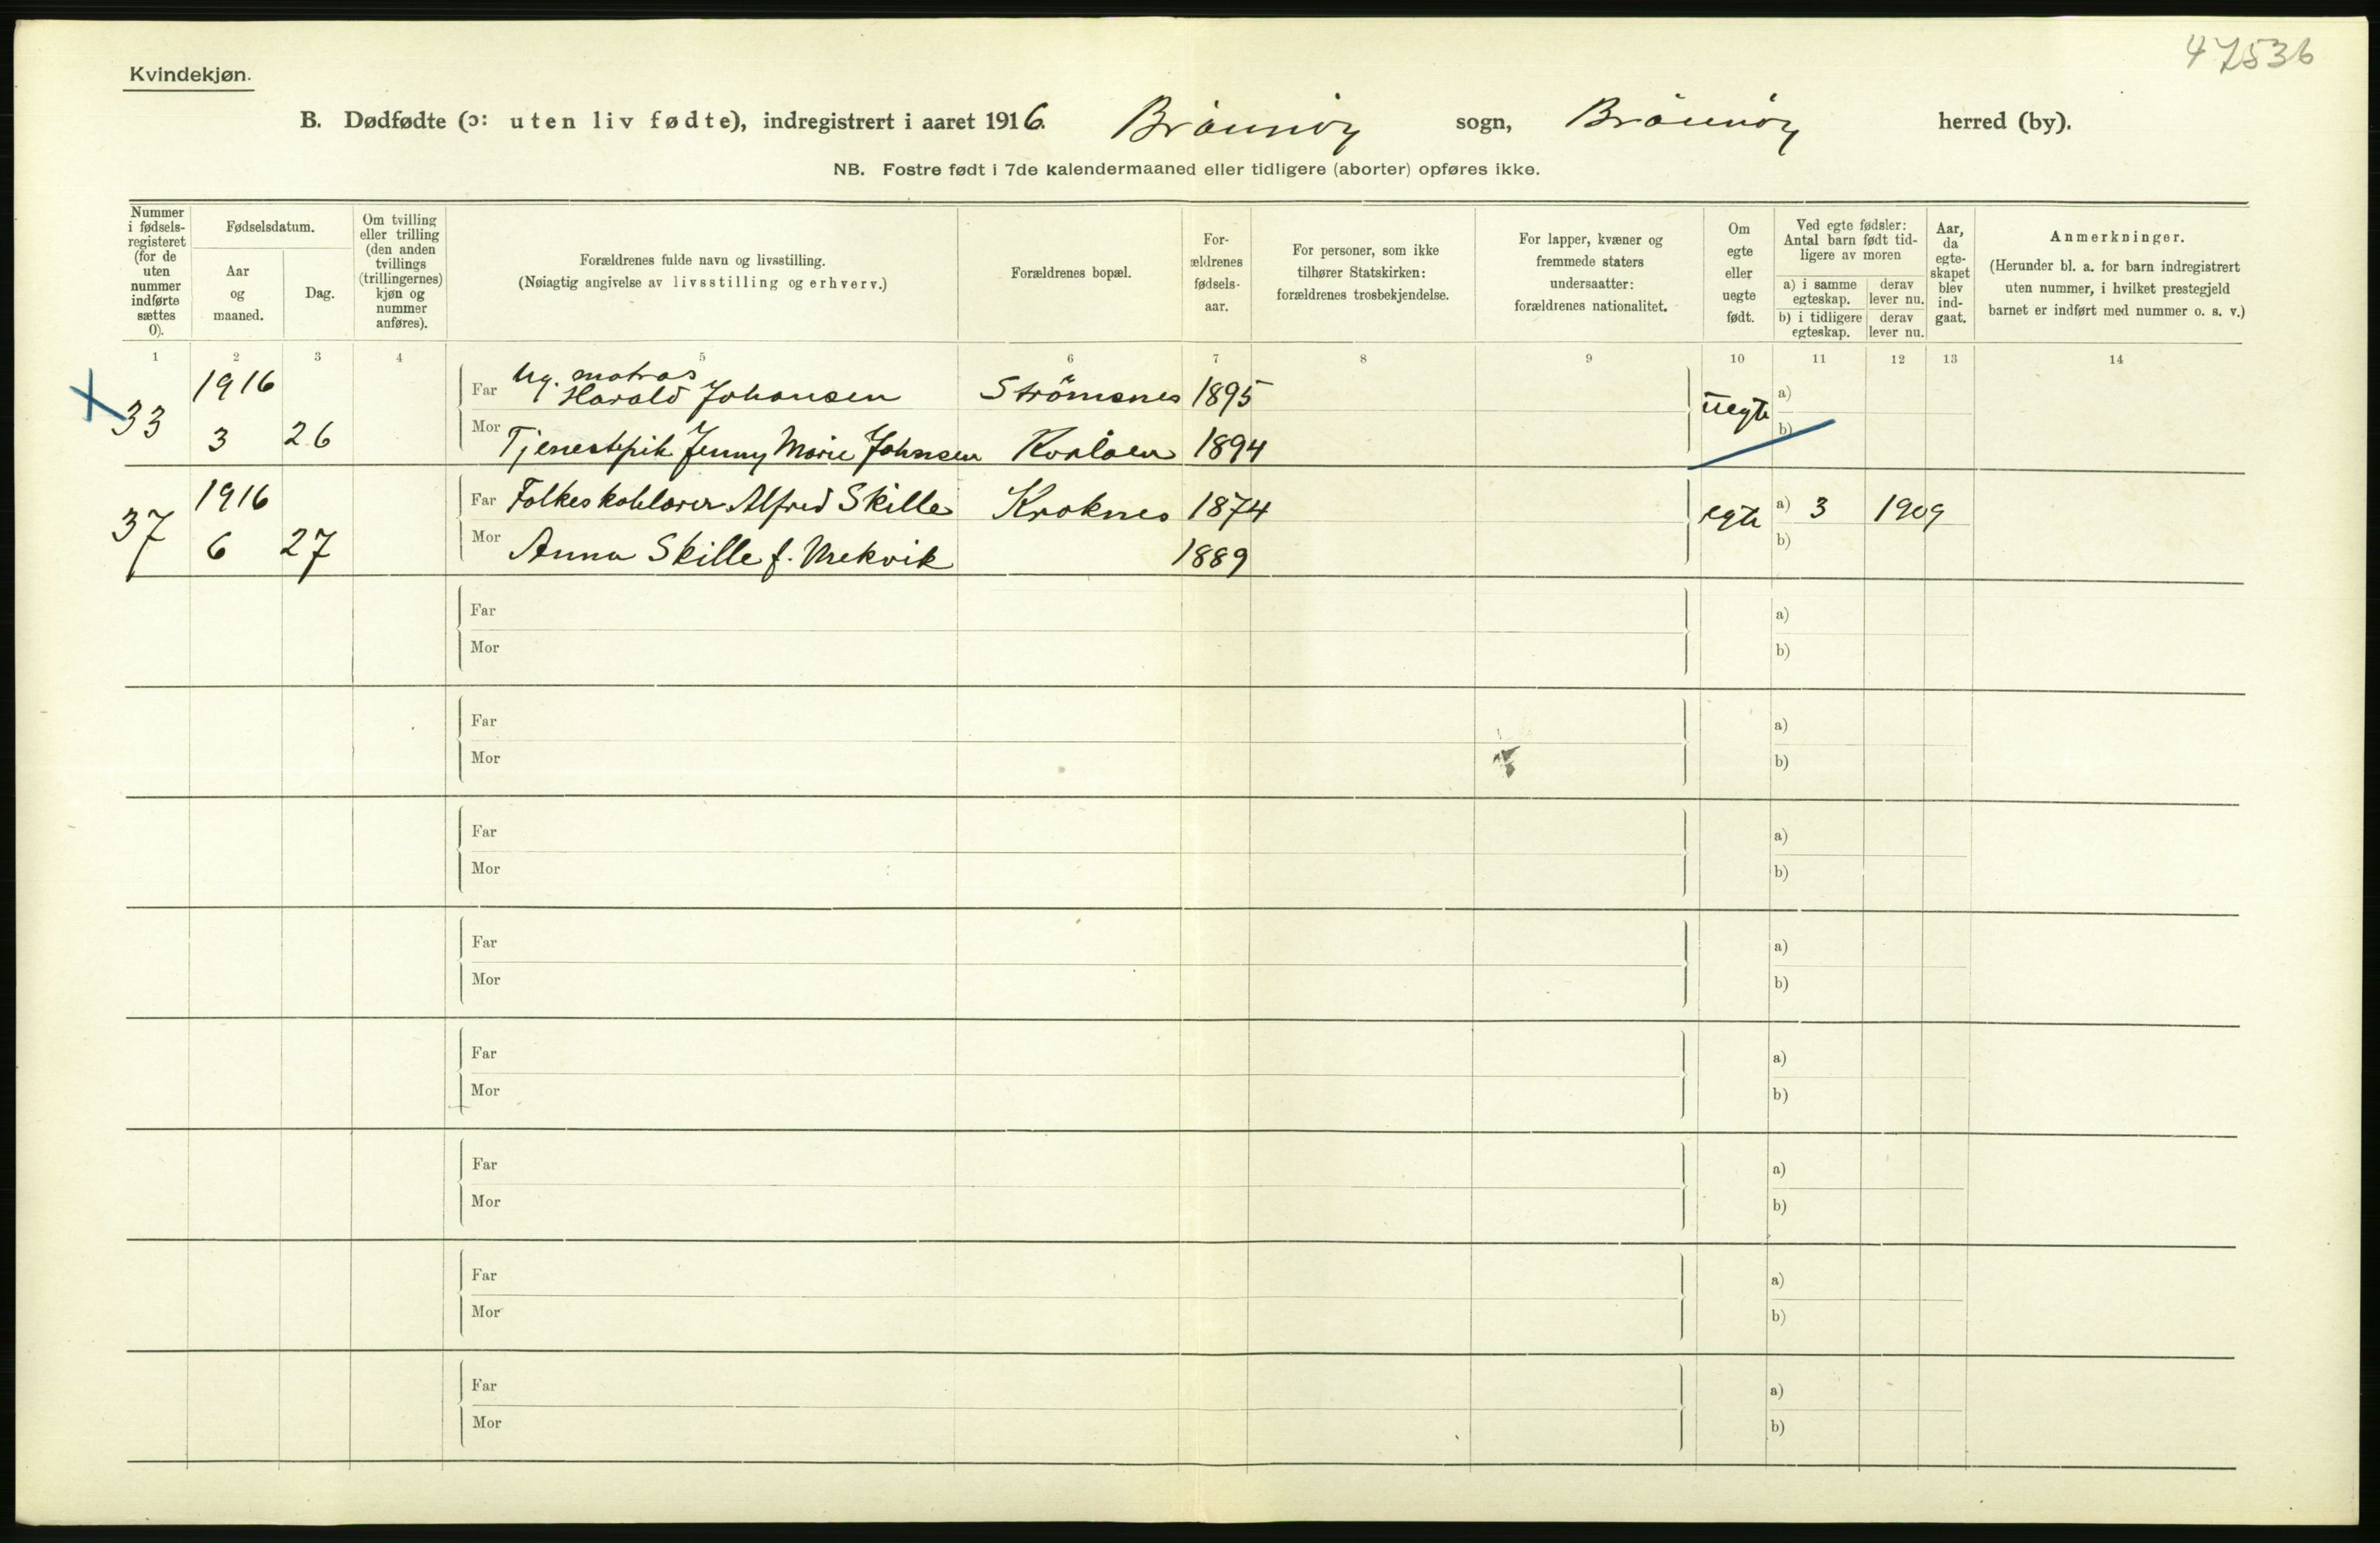 47536
Kvindekjøn.
B. Dødfødte (ɔ: uten liv fødte), indregistrert i aaret 1916. Brönnöy sogn, Brönnöy herred (by).
NB. Fostre født i 7de kalendermaaned eller tidligere (aborter) opføres ikke.
Nummer
i fødsels-
registeret
(for de
uten
nummer
indførte
sættes
0).
Fødselsdatum.
Aar
og
maaned.
Dag.
Om tvilling
eller trilling
(den anden
tvillings
(trillingernes)
kjøn og
nummer
anføres).
Forældrenes fulde navn og livsstilling.
(Nøiagtig angivelse av livsstilling og erhverv.)
Forældrenes bopæl.
For-
ældrenes
fødsels-
aar.
For personer, som ikke
tilhører Statskirken:
forældrenes trosbekjendelse.
For lapper, kvæner og
fremmede staters
undersaatter:
forældrenes nationalitet.
Om
egte
eller
uegte
født.
Ved egte fødsler:
Antal barn født tid-
ligere av moren
a) i samme
egteskap.
derav
lever nu.
b) i tidligere
egteskap.
derav
lever nu.
Aar,
da
egte-
skapet
blev
ind-
gaat.
Anmerkninger.
(Herunder bl. a. for barn indregistrert
uten nummer, i hvilket prestegjeld
barnet er indført med nummer o. s. v.)
1 2 3 4 5 6 7 8 9 10 11 12 13 14
Ug. matros
1916 Far Harald Johansen Strömsnes 1895 uegte a)
33 3 26 Mor Tjenestepik Jenny Marie Johnsen Kvaløen 1894 b)
1916 Far Folkeskolelærer Alfred Skille Kroknes 1874 egte a) 3 1909
37 6 27 Mor Anna Skille f. Urekvik 1889 b)
Far a)
Mor b)
Far a)
Mor b)
Far a)
Mor b)
Far a)
Mor b)
Far a)
Mor b)
Far a)
Mor b)
Far a)
Mor b)
Far a)
Mor b)